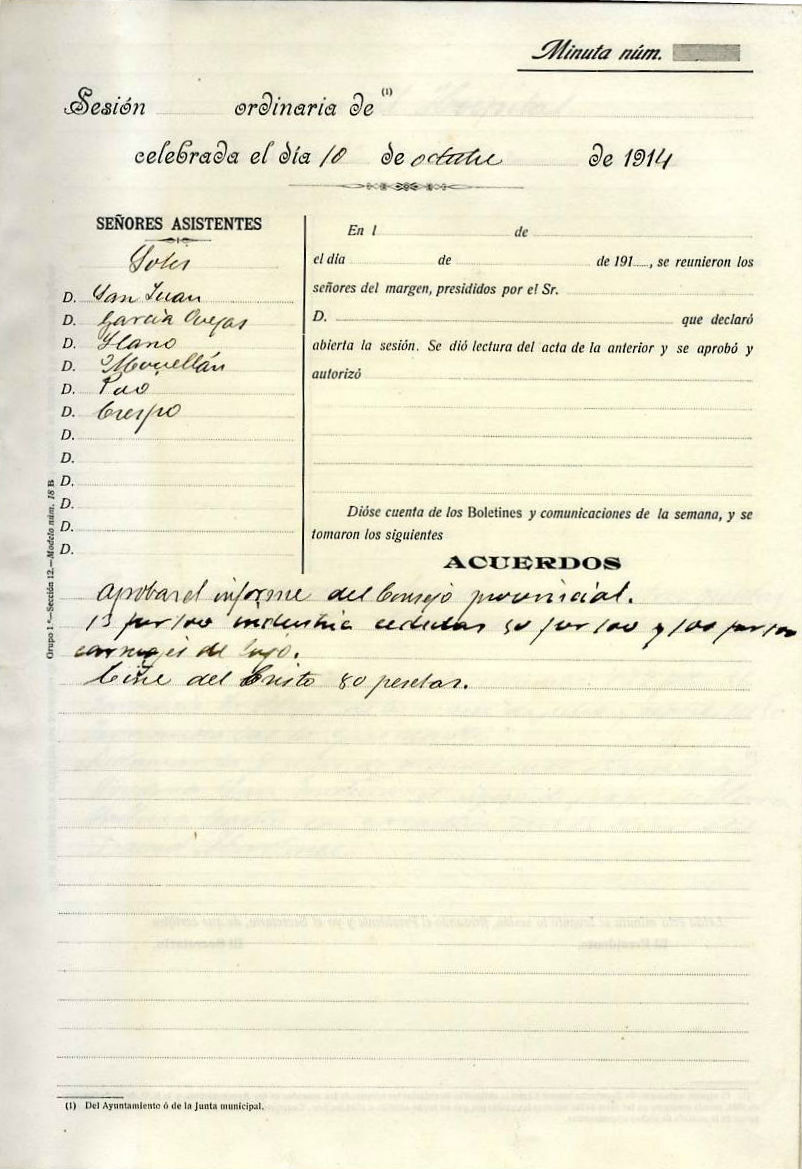 Minuta núm.
Sesión ordinaria de (1)
celebrada el día 10 de octubre de 1914
SEÑORES ASISTENTES
Solis
D. San Juan
D. García Ovejas
D. Llano
D.
D.
D. Crespo
D.
D.
D.
D.
D.
D.
En l de
el día de de 191....., se reunieron los
señores del margen, presididos por el Sr.
D. que declaró
abierta la sesión. Se dió lectura del acta de la anterior y se aprobó y
autorizó
Dióse cuenta de los Boletines y comunicaciones de la semana, y se
tomaron los siguientes
ACUERDOS
Aprobar el informe del Consejo provincial.
13 por 100 industria cedulas 50 por 100 y 100 por 100
carruajes de lujo.
Cine del Cristo 80 pesetas.
Grupo 1.º—Sección 12.—Modelo núm. 18 B
(1) Del Ayuntamiento ó de la Junta municipal.